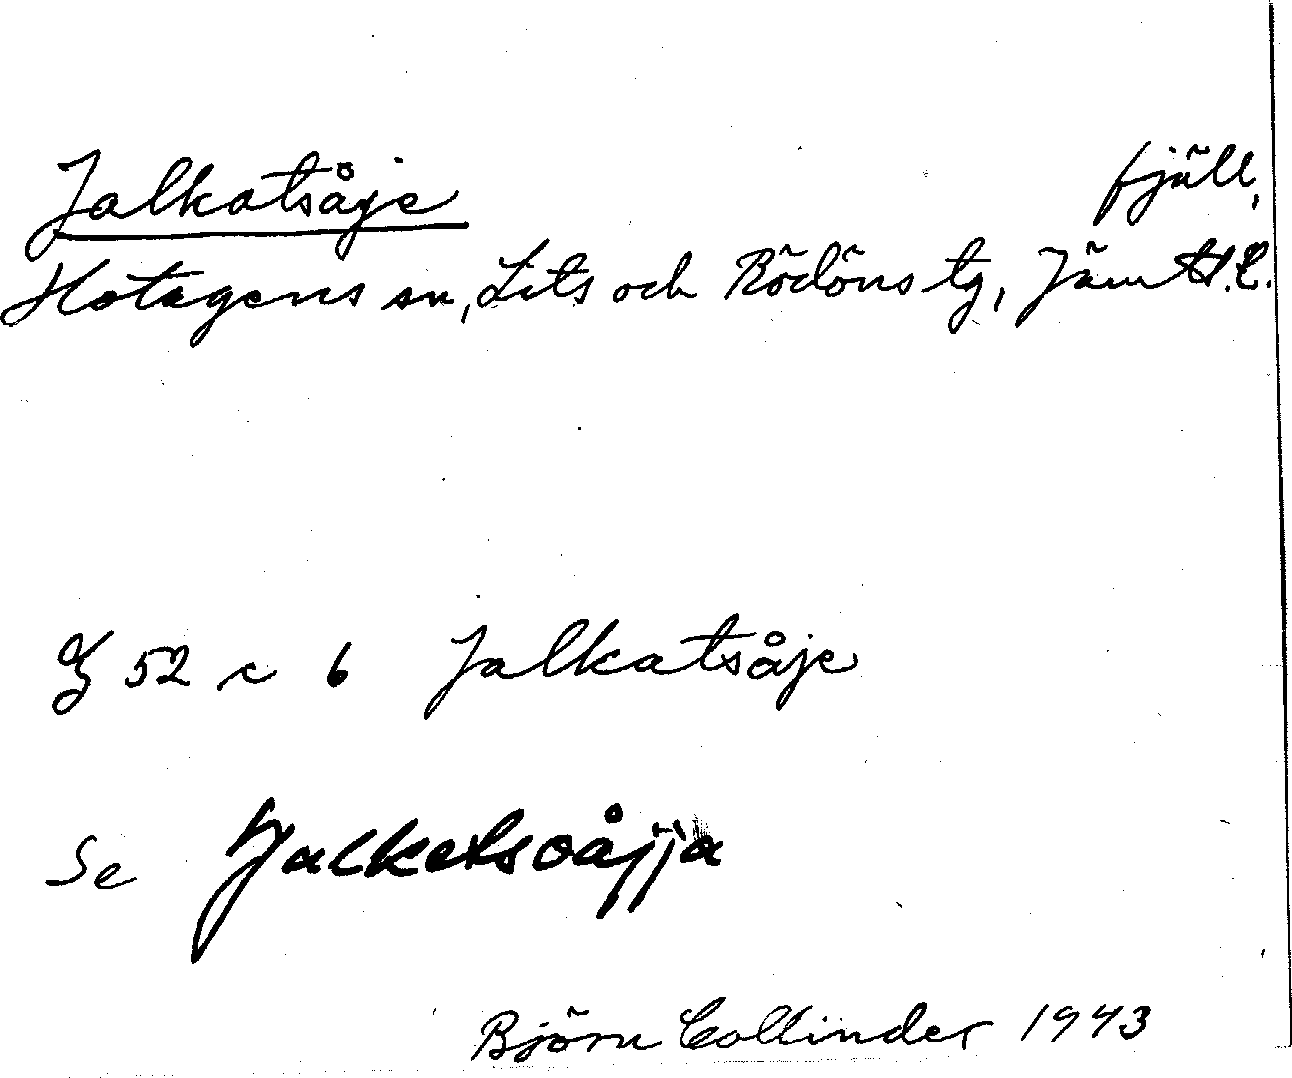 Jalkatsåje fjäll,
Hotagens sn, Lits och Rödöns tg, Jämtl. l.
G 52 c 6 Jalkatsåje
Se Jalketsoåjja
Björn Collinder 1943